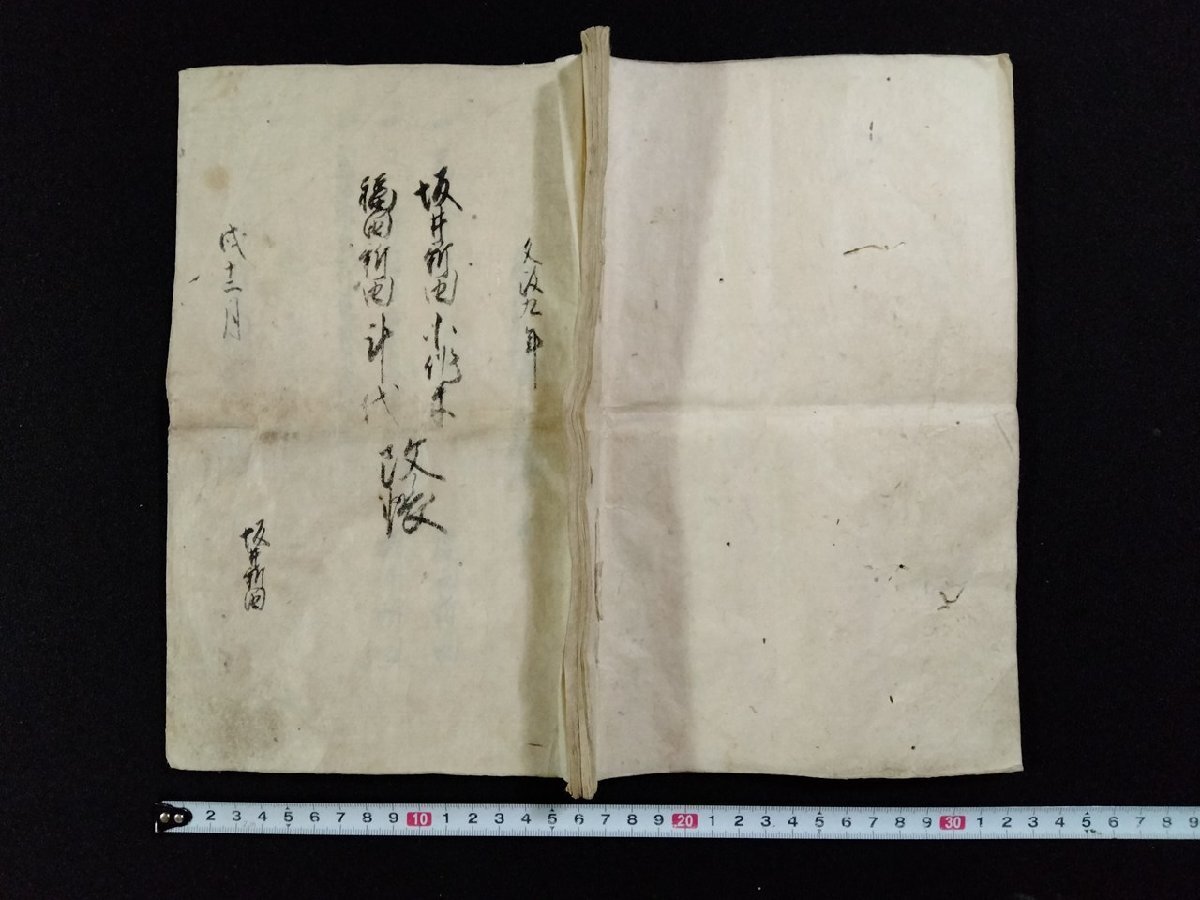 文政九年
坂井新田小作米
福田新田計代
改帳
戌十二月
坂井新田
2 3 4 5 6 7 8 9 10 1 2 3 4 5 6 7 8 9 20 1 2 3 4 5 6 7 8 9 30 1 2 3 4 5 6 7 8 9